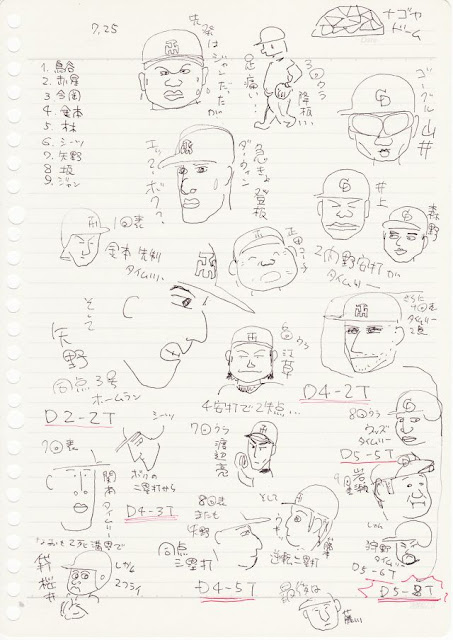 7.25
ナゴヤ
ドーム
1. 鳥谷
2. 赤星
3 今岡
4. 金本
5. 林
6. シーツ
7. 矢野
8 坂
9. ジャン
先発は
ジャンだったが
足痛い…
3回ウラ
降板…
ゴーグル
山井
エッ?ボク?
ダーウィン
急きょ登板
井上
森野
1回表
金本先制
タイムリー
2内野安打が
タイムリー
そして
矢野
同点3号
ホームラン
D2-2T
6回ウラ
江草
4安打で2失点…
D4-2T
7回表
シーツ
ボクの
二塁打から
D4-3T
関本タイムリー
なおも2死満塁で
代打桜井
しかし
三ゴ
7回ウラ
渡辺亮
8回表
またも
矢野
同点
二塁打
D4-5T
そして
逆転二塁打
8回ウラ
ウッズ
タイムリー
D5-5T
9回表
岩瀬
狩野
タイムリー
D5-6T
D5-8T
最後は
藤川